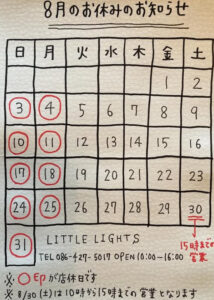 8月のお休みのお知らせ
日 月 火 水 木 金 土
1 2
3 4 5 6 7 8 9
10 11 12 13 14 15 16
17 18 19 20 21 22 23
24 25 26 27 28 29 30
15時までの
営業
31 LITTLE LIGHTS
TEL 086-427-5017 OPEN 10:00-16:00
※ ○印が店休日です
※ 8/30(土)は10時から15時までの営業となります